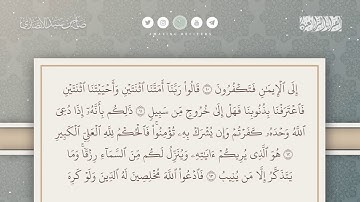 AMAZING RECITERS
إِلَى ٱلْإِيمَٰنِ فَتَكْفُرُونَ ۝١٠ قَالُوا۟ رَبَّنَآ أَمَتَّنَا ٱثْنَتَيْنِ وَأَحْيَيْتَنَا ٱثْنَتَيْنِ
فَٱعْتَرَفْنَا بِذُنُوبِنَا فَهَلْ إِلَىٰ خُرُوجٍ مِّن سَبِيلٍ ۝١١ ذَٰلِكُم بِأَنَّهُۥٓ إِذَا دُعِىَ
ٱللَّهُ وَحْدَهُۥ كَفَرْتُمْ وَإِن يُشْرَكْ بِهِۦ تُؤْمِنُوا۟ فَٱلْحُكْمُ لِلَّهِ ٱلْعَلِىِّ ٱلْكَبِيرِ
۝١٢ هُوَ ٱلَّذِى يُرِيكُمْ ءَايَٰتِهِۦ وَيُنَزِّلُ لَكُم مِّنَ ٱلسَّمَآءِ رِزْقًا وَمَا
يَتَذَكَّرُ إِلَّا مَن يُنِيبُ ۝١٣ فَٱدْعُوا۟ ٱللَّهَ مُخْلِصِينَ لَهُ ٱلدِّينَ وَلَوْ كَرِهَ